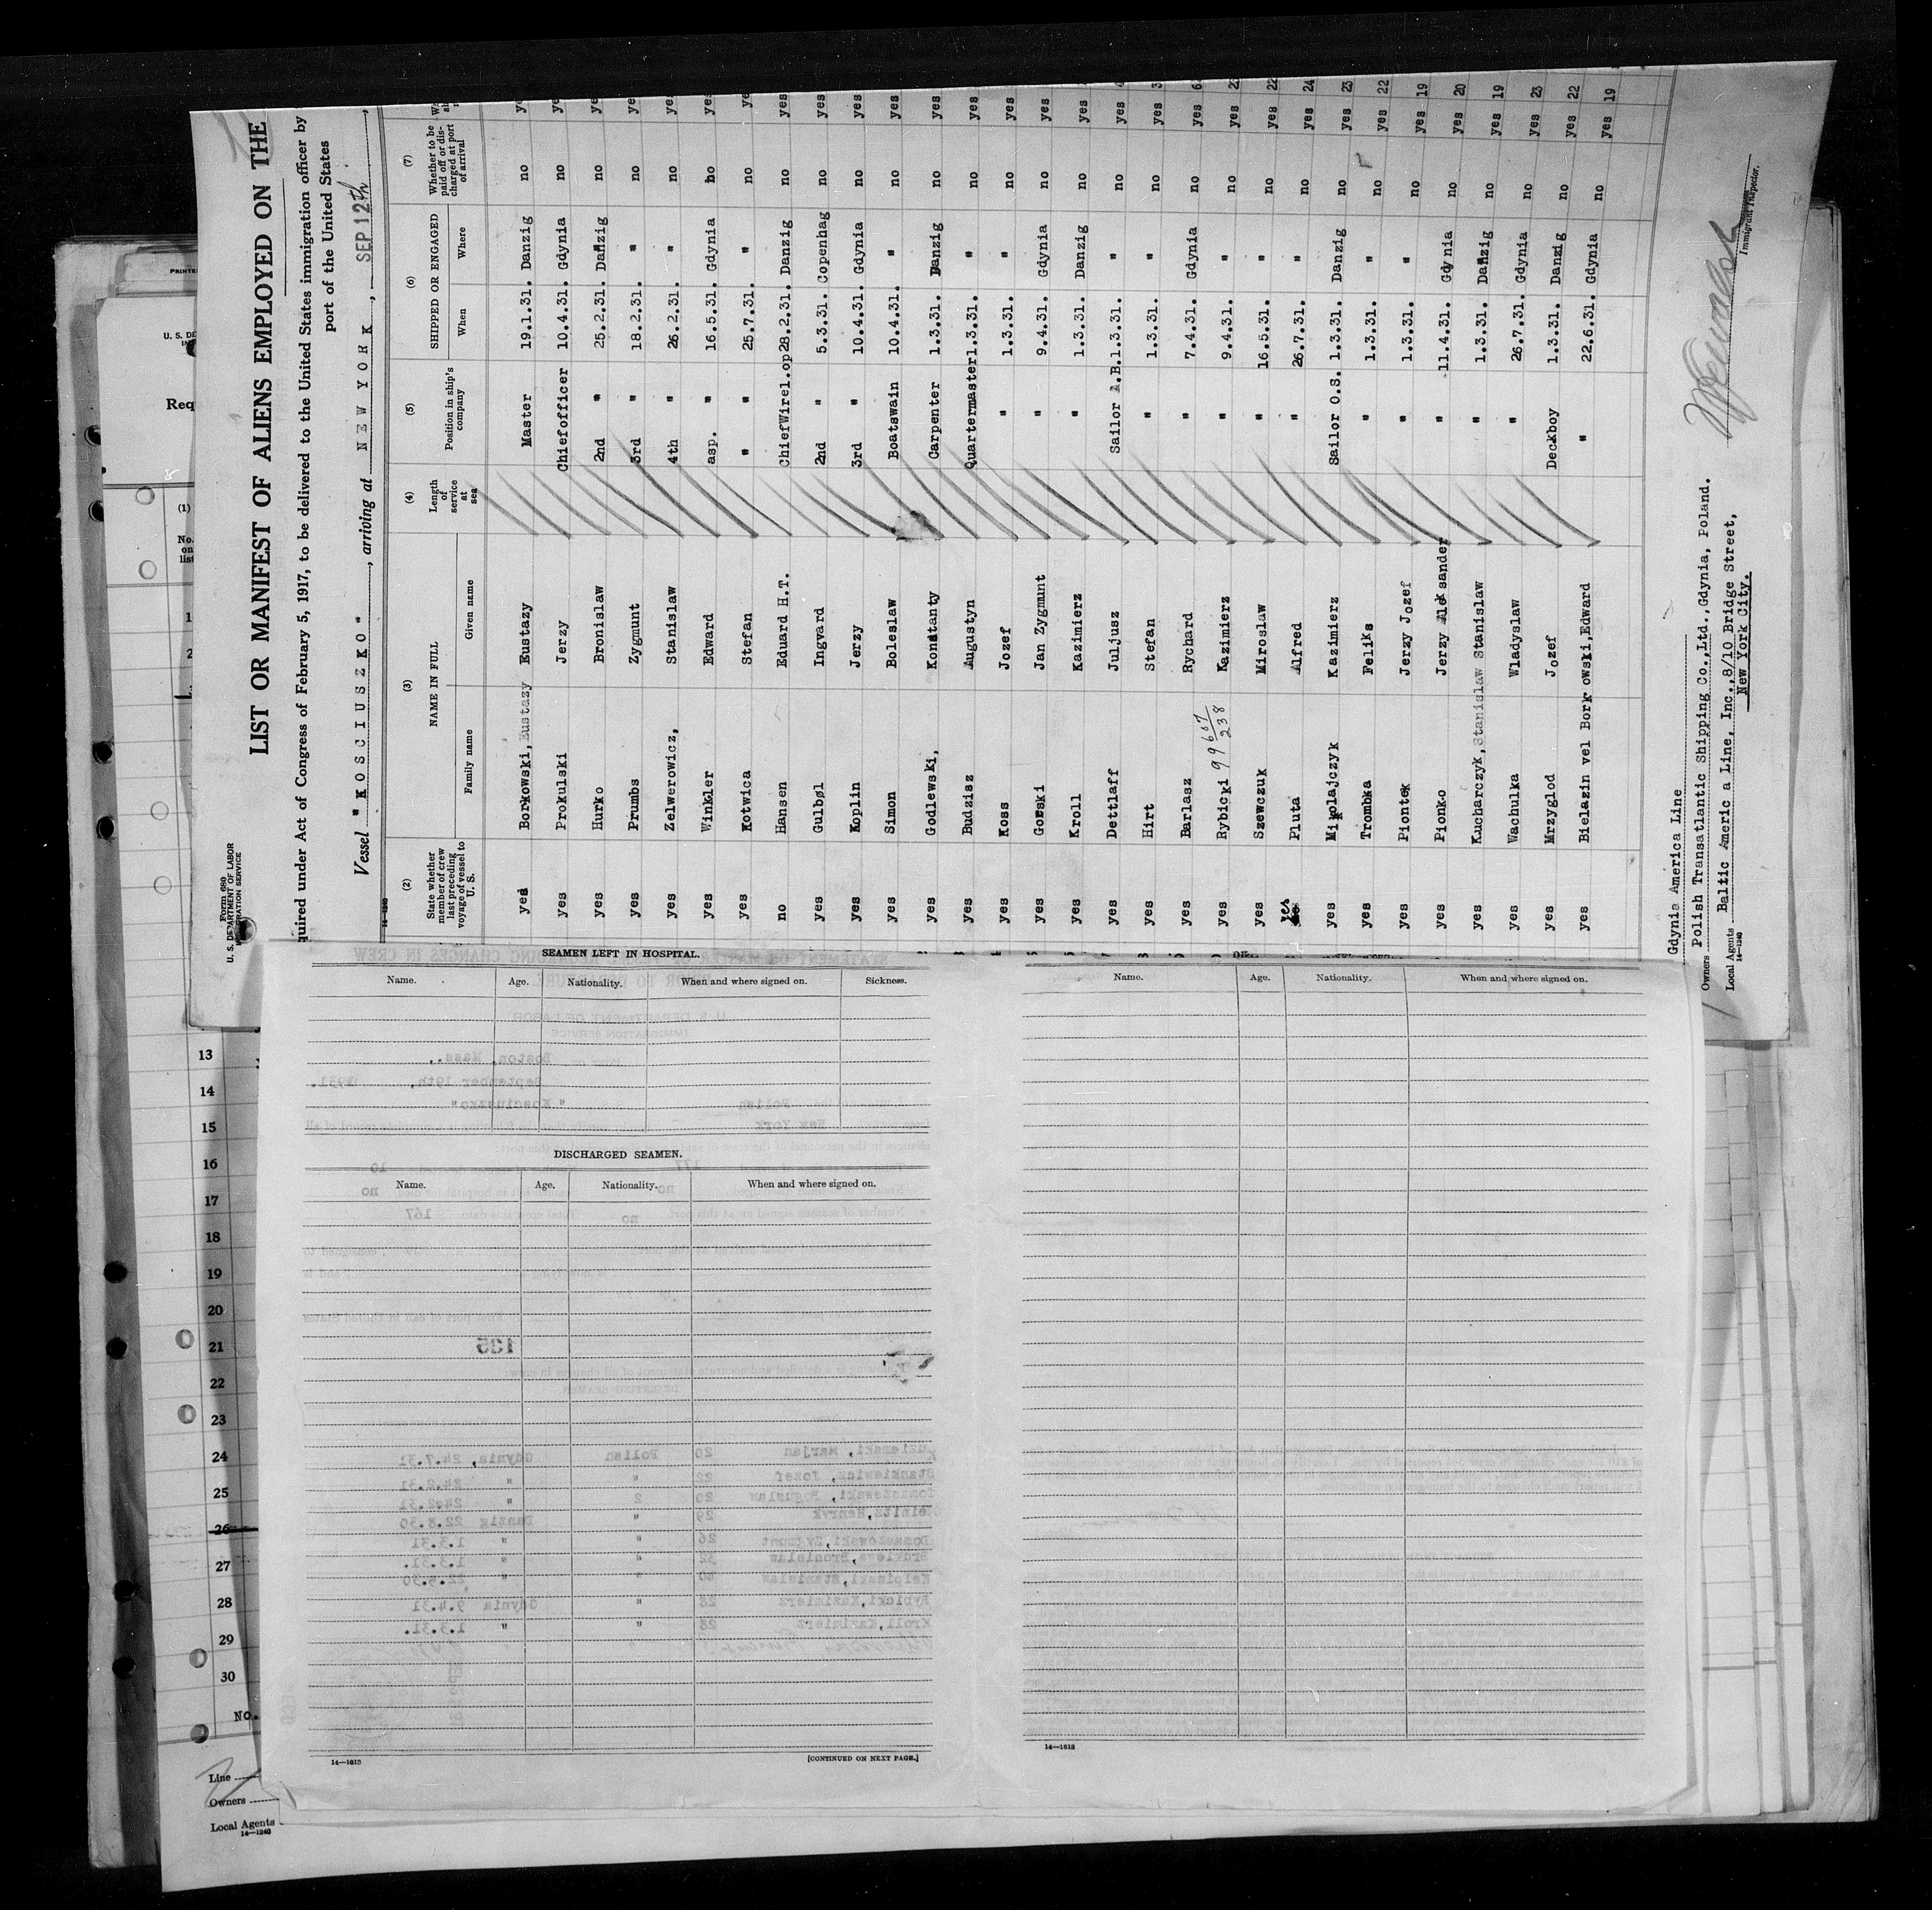 Form 680
U. S. DEPARTMENT OF LABOR
IMMIGRATION SERVICE
LIST OR MANIFEST OF ALIENS EMPLOYED ON THE
quired under Act of Congress of February 5, 1917, to be delivered to the United States immigration officer by
port of the United States
Vessel "KOSCIUSZKO", arriving at NEW YORK, SEP 12th,
14-1240
(2) (3) (4) (5) (6) (7)
State whether member of crew last preceding voyage of vessel to U. S.
NAME IN FULL
Family name Given name
Length of service at sea
Position in ship's company
SHIPPED OR ENGAGED
When Where
Whether to be paid off or discharged at port of arrival
yes Borkowski, Eustazy Eustazy Master 19.1.31. Danzig no ye
yes Prokulski Jerzy Chiefofficer 10.4.31. Gdynia no ye
yes Hurko Bronislaw 2nd " 25.2.31. Danzig no ye
yes Prumbs Zygmunt 3rd " 18.2.31. " no ye
yes Zelwerowicz, Stanislaw 4th " 26.2.31. " no ye
yes Winkler Edward asp. " 16.5.31. Gdynia no yes
yes Kotwica Stefan " " 25.7.31. " no ye
no Hansen Eduard H.T. ChiefWirel.op 28.2.31. Danzig no yes
yes Gulbøl Ingvard 2nd " 5.3.31. Copenhag no yes
yes Koplin Jerzy 3rd " 10.4.31. Gdynia no yes
yes Simon Boleslaw Boatswain 10.4.31. " no yes
yes Godlewski, Konstanty Carpenter 1.3.31. Danzig no yes
yes Budzisz Augustyn Quartermaster 1.3.31. " no yes
yes Koss Jozef " 1.3.31. " no yes
yes Gorski Jan Zygmunt " 9.4.31. Gdynia no yes
yes Kroll Kazimierz " 1.3.31. Danzig no yes
yes Dettlaff Juljusz Sailor A.B. 1.3.31. " no yes
yes Hirt Stefan " 1.3.31. " no yes 3
yes Barlasz Rychard " 7.4.31. Gdynia no yes 6
yes Rybicki 99 667/238 Kazimierz " 9.4.31. " no yes 2
yes Szewczuk Miroslaw " 16.5.31. " no yes 22
yes Pluta Alfred " 26.7.31. " no yes 24
yes Mikolajczyk Kazimierz Sailor O.S. 1.3.31. Danzig no yes 23
yes Trombka Feliks " 1.3.31. " no yes 22
yes Piontek Jerzy Jozef " 1.3.31. " no yes 19
yes Pionko Jerzy Aleksander " 11.4.31. Gdynia no yes 20
yes Kucharczyk, Stanislaw Stanislaw " 1.3.31. Danzig no yes 19
yes Wachulka Wladyslaw " 26.7.31. Gdynia no yes 23
yes Mrzyglod Jozef Deckboy 1.3.31. Danzig no yes 22
yes Bielazin vel Borkowski, Edward " 22.6.31. Gdynia no yes 19
Gdynia America Line
Owners Polish Transatlantic Shipping Co., Ltd., Gdynia, Poland.
Local Agents Baltic America Line, Inc., 8/10 Bridge Street,
New York City.
14-1240
Immigrant Inspector.
PRINTE
U. S. DE
Req
(1)
No. on list
1
2
13
14
15
16
17
18
19
20
21
22
23
24
25
26
27
28
29
30
No.
Line
Owners
Local Agents
14-1240
SEAMEN LEFT IN HOSPITAL.
Name. Age. Nationality. When and where signed on. Sickness.
DISCHARGED SEAMEN.
Name. Age. Nationality. When and where signed on.
14-1613
[CONTINUED ON NEXT PAGE.]
Name. Age. Nationality. When and where signed on.
14-1613
Boston, Mass.,
September 19th, 1931.
Polish "Kosciuszko"
New York
177 10
no no
no 167
135
Marjan 20 Polish Gdynia, 24.7.31
Stankiewicz, Jozef 22 " " 24.2.31
Henryk 29 " Danzig 22.8.30
Tomaszewski, Zygmunt 26 " " 1.3.31
Bronislaw 32 " " 1.3.31.
Rybicki, Kazimierz 28 " Gdynia 9.4.31
Kroll, Kazimierz 28 " " 1.3.31.